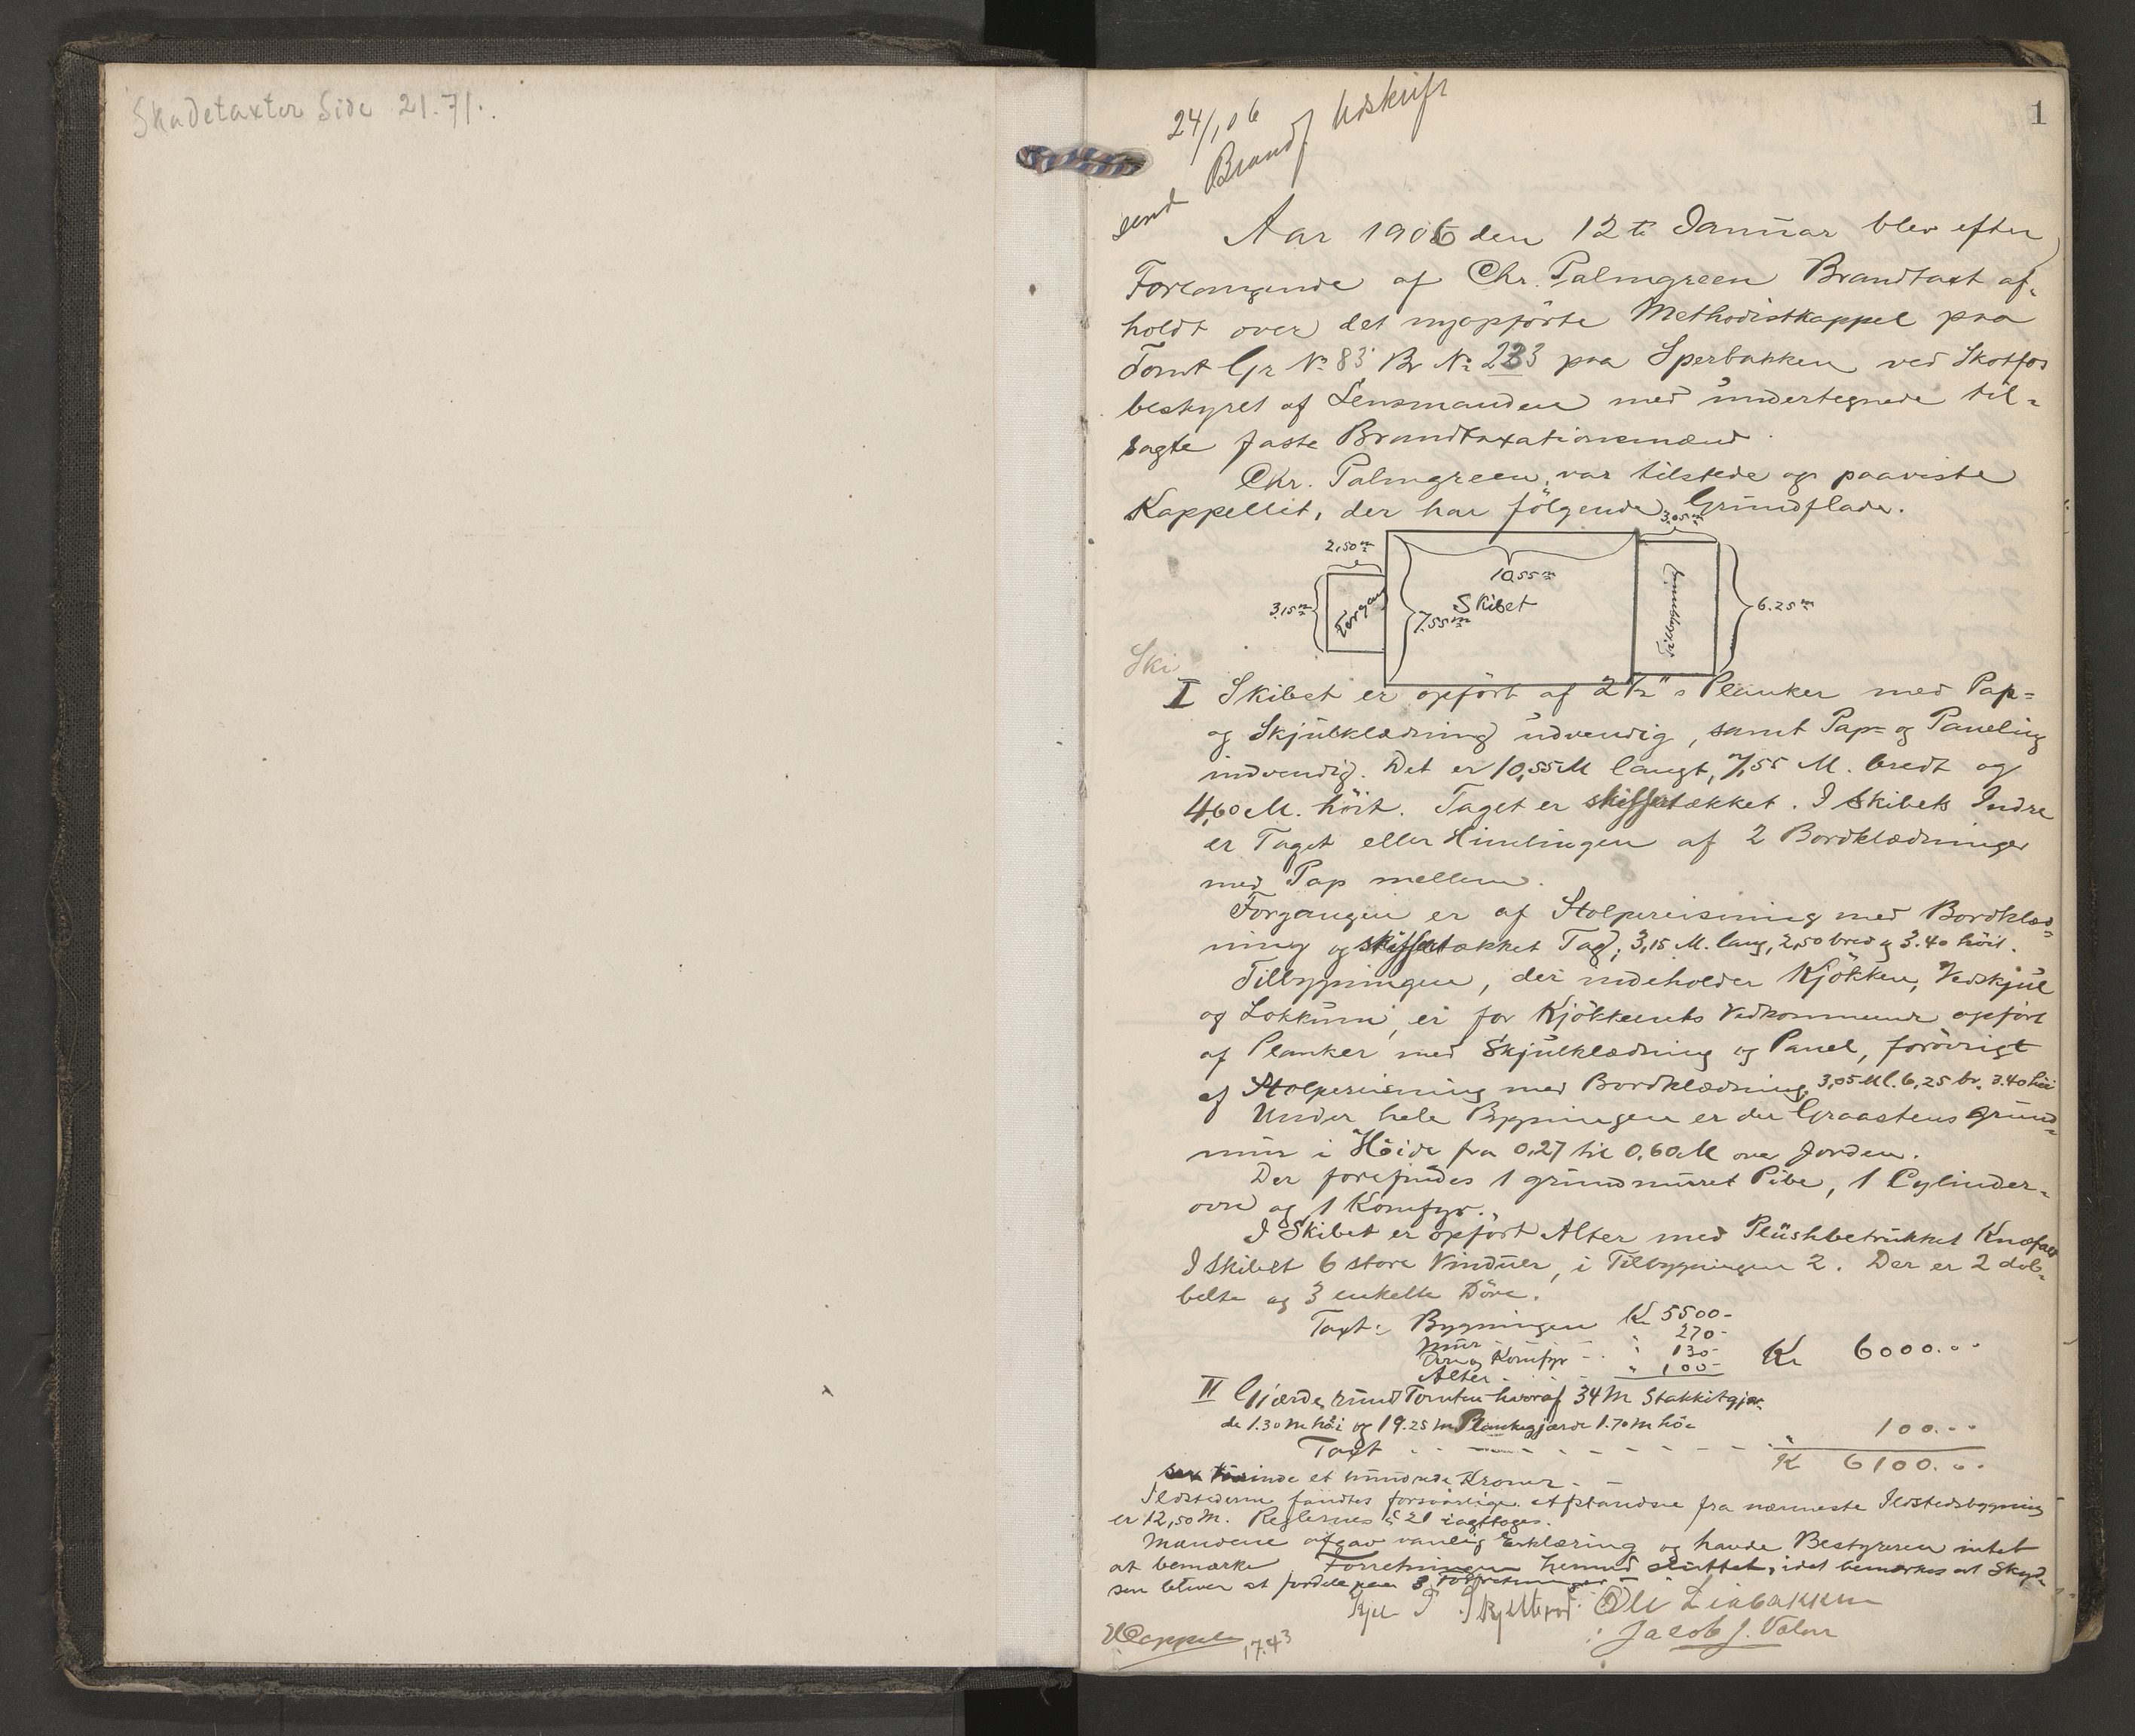 Skadetaxter Side 21. 71.
1
24/1 06
send Brandf Udskrift
Aar 1906 den 12te Januar blev efter
Forlangende af Chr. Palmgreen Brandtaxt af-
holdt over det nyopførte Methodistkappel paa
Tomt Gr No 83 Br No 233 paa Sperbakken ved Skotfos
bestyret af Lensmanden med undertegnede til-
sagte faste Brandtaxationsmænd.
Chr. Palmgreen var tilstede og paaviste
Kappellet, der har følgende Grundflade.
3,05 m
2,50 m
10,55 m
3,15 m
Forgan
7,55 m
Skibet
Tilbygning
6.25 m
Ski
I Skibet er opført af 2½" s Planker med Pap-
og Skjulklædning udvendig, samt Pap- og Paneling
indvendig. Det er 10,55 M langt, 7,55 M. bredt og
4,60 M. høit. Taget er skiffertækket. I Skibets Indre
er Taget eller Himlingen af 2 Bordklædninger
med Pap mellem.
Forgangen er af Stolpereisning med Bordklæd-
ning og skiffertækket Tag; 3,15 M. lang, 2,50 bred og 3.40 høit.
Tilbygningen, der indeholder Kjøkken, Vedskjul
og Lokkum, er for Kjøkkenets Vedkommende opført
af Planker med Skjulklædning og Panel, forøvrigt
af Stolpereisning med Bordklædning, 3,05 M l. 6,25 br. 3.40 høi
Under hele Bygningen er der Graastens grund-
mur i Høide fra 0,27 til 0,60 M over Jorden.
Der forefindes 1 grundmuret Pibe, 1 Cylinder-
ovn og 1 Komfyr.
I Skibet er opført Alter med Plüshbetrukket Knæfald
I Skibet 6 store Vinduer, i Tilbygningen 2. Der er 2 dob-
belte og 3 enkelte Döre.
Taxt: Bygningen Kr 5500-
Mur 270-
Ovn og Komfyr - " 130-
Alter - " 100- Kr 6000...
II Gjærde rundt Tomten hvoraf 34 M Stakkitgjær-
de 1.30 M høi og 19.25 M Plankegjærde 1.70 M hø-
Taxt - - - " 100...
K 6100...
sex tusinde et hundrede Kroner.
Ildstederne fandtes forsvarlige. Afstanden fra nærmeste Ildstedsbygning
er 12,50 M. Reglernes § 21 iagttoges.
Mændene afgav vanlig Erklæring og havde Bestyreren intet
at bemærke Forretningen hermed sluttet, idet bemærkes at Skyd-
sen bliver at fordele paa 3 Forretninger
Ole Liabakken
Jacob J. Valer
HCappelen
1743